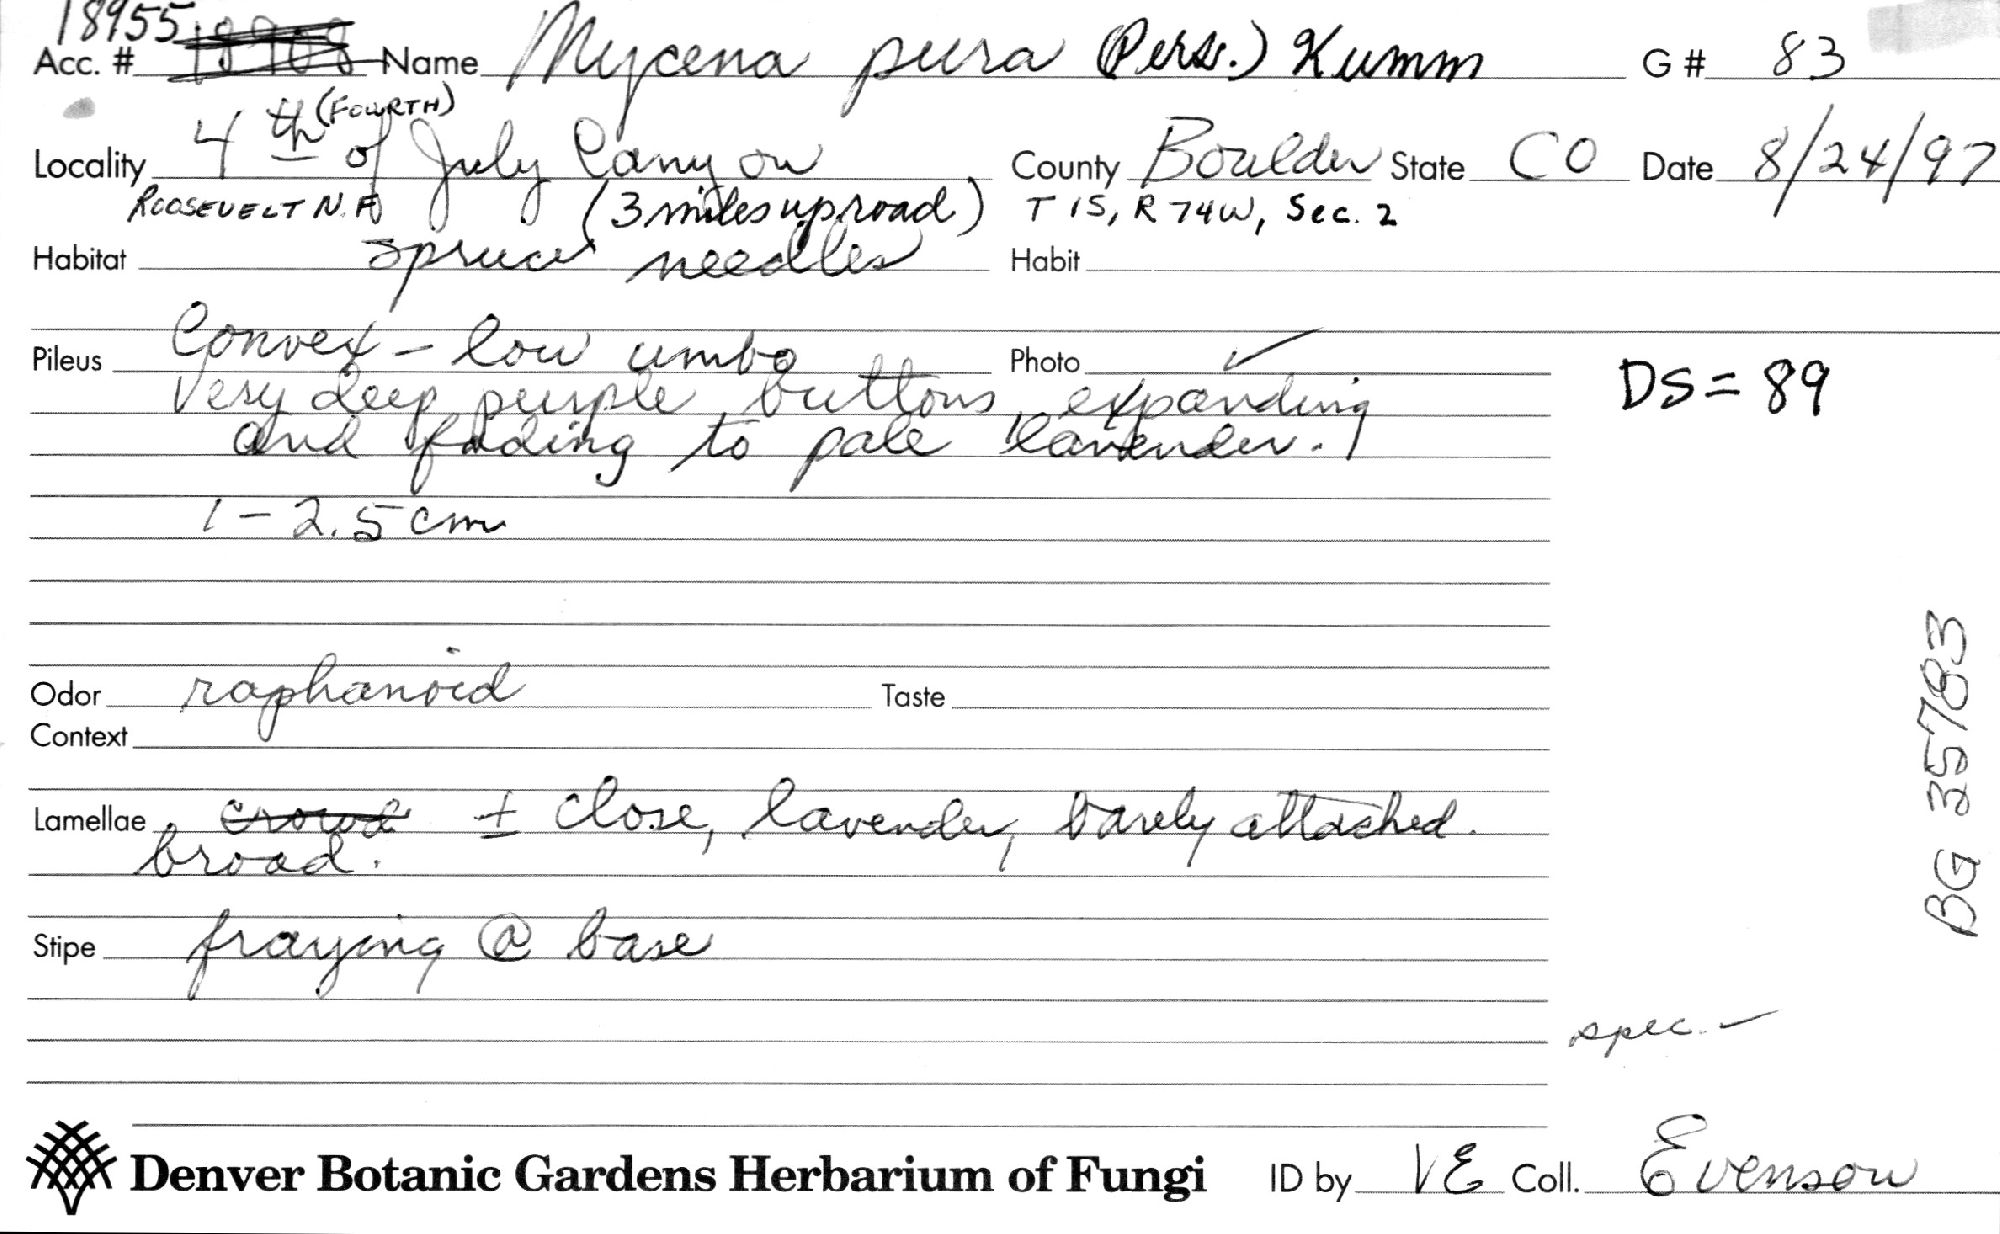 18955
Acc. # Name Mycena pura (Pers.) Kumm G # 83
(FOURTH)
Locality 4th of July Canyon County Boulder State CO Date 8/24/97
ROOSEVELT N.F. (3 miles up road) T1S, R74W, Sec. 2
Habitat spruce needles Habit
Pileus Convex - low umbo Photo ✓
Very deep purple buttons, expanding DS = 89
and fading to pale lavender.
1 - 2.5 cm
Odor raphanoid Taste
Context
Lamellae crowd ± close, lavender, barely attached.
broad.
Stipe fraying @ base
spec. ✓
BG 35783
Denver Botanic Gardens Herbarium of Fungi ID by VE Coll. Evenson